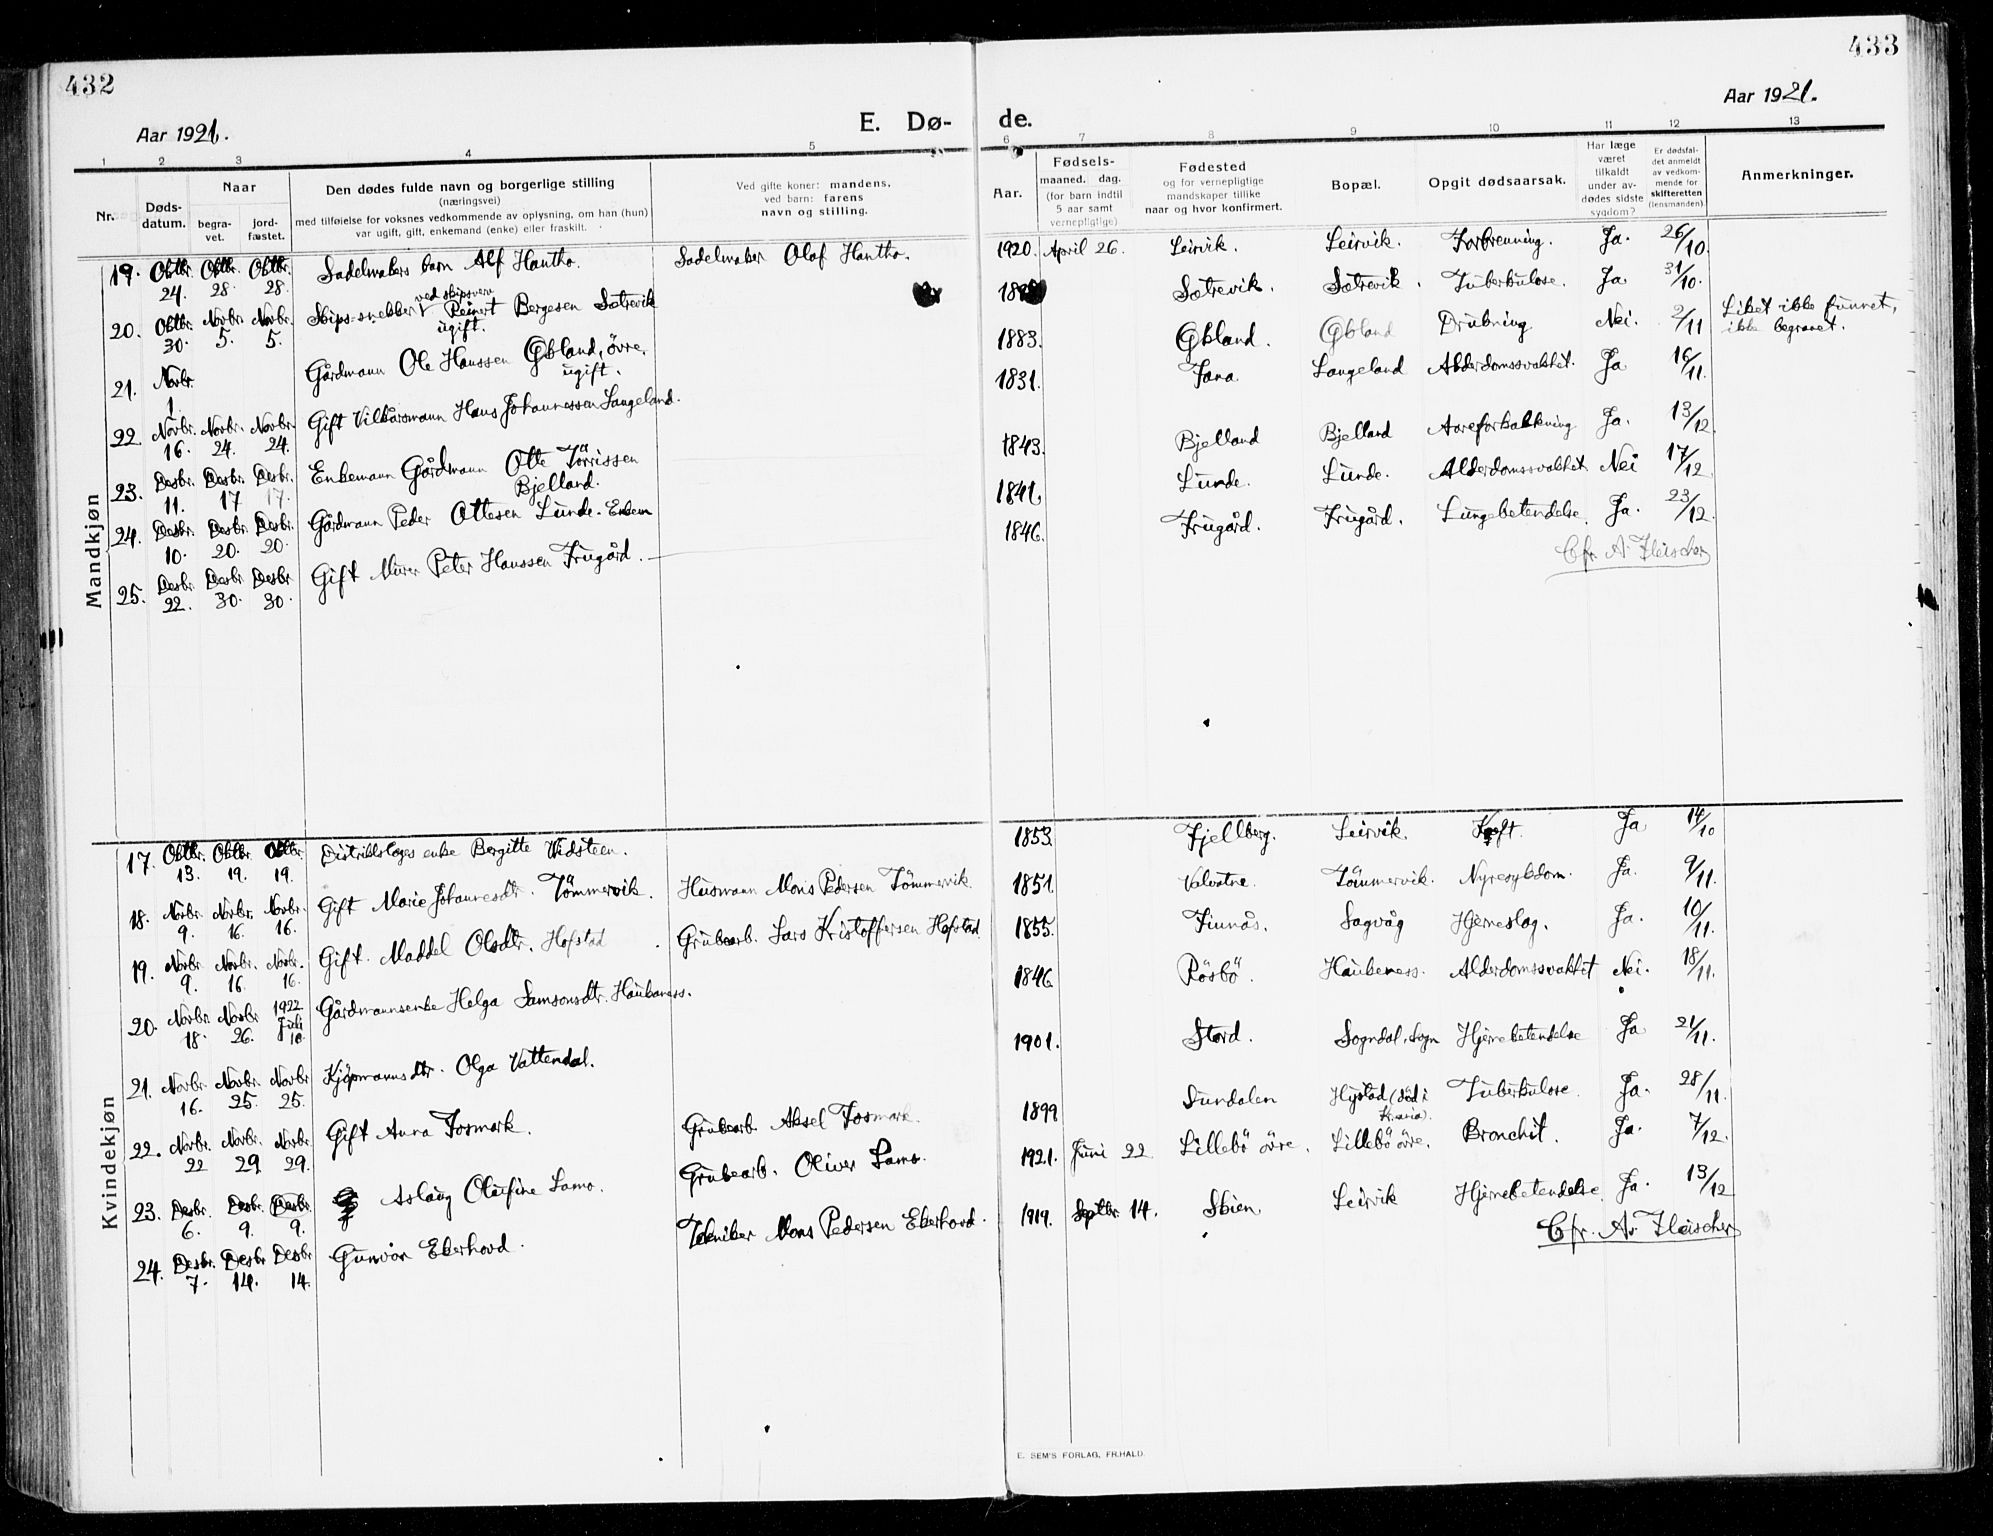 432
433
Aar 1921.
E. Dø-
de.
Aar 1921.
1 2 3 4 5 6 7 8 9 10 11 12 13
Nr.
Døds-
datum.
Naar
begra-
vet.
jord-
fæstet.
Den dødes fulde navn og borgerlige stilling
(næringsvei)
med tilføielse for voksnes vedkommende av oplysning, om han (hun)
var ugift, gift, enkemand (enke) eller fraskilt.
Ved gifte koner: mandens,
ved barn: farens
navn og stilling.
Aar.
Fødsels-
maaned. dag.
(for barn indtil
5 aar samt
vernepligtige)
Fødested
og for vernepligtige
mandskaper tillike
naar og hvor konfirmert.
Bopæl.
Opgit dødsaarsak.
Har læge
været
tilkaldt
under av-
dødes sidste
sygdom?
Er dødsfal-
det anmeldt
av vedkom-
mende for
skifteretten
(lensmanden).
Anmerkninger.
Mandkjøn
19. Oktbr. 24. Oktbr. 28. Oktbr. 28. Sadelmakers barn Alf Hantho. Sadelmaker Olaf Hantho. 1920. April 26. Leirvik. Leirvik. Forbrenning. Ja. 26/10.
20. Oktbr. 30. Novbr. 5. Novbr. 5. Skips-snekker ved skipsverv Reinert Bergesen Sætrevik ugift. Sætrevik. Sætrevik. Tuberkulose. Ja. 31/10.
21. Novbr. 1. Gårdmann Ole Hanssen Økland, övre, ugift. 1883. Økland. Økland Drukning Nei. 2/11 Liket ikke funnet, ikke begravet.
22. Novbr. 16. Novbr. 24. Novbr. 24. Gift Vilkårsmann Hans Johannessen Langeland. 1831. Fana. Langeland Alderdomssvakhet. Ja 16/11.
23. Desbr. 11. Desbr. 17 Desbr. 17. Enkemann Gårdmann Otte Törrissen Bjelland. 1843. Bjelland Bjelland Aareforkalkning Ja. 13/12.
24. Desbr. 10. Desbr. 20. Desbr. 20. Gårdmann Peder Ottesen Lunde. Enkem 1841. Lunde. Lunde. Alderdomssvakhet Nei 17/12
25. Desbr. 22. Desbr. 30. Desbr. 30. Gift Murer Peter Hanssen Frugård. 1846. Frugård. Frugård. Lungebetendelse. Ja. 23/12.
Chr. A. Fleischer
Kvindekjøn
17. Oktbr. 13. Oktbr. 19. Oktbr. 19. Distriktslæges enke Bergitte Vidsteen. 1853. Fjellberg. Leirvik. Kræft. Ja 14/10
18. Novbr. 9. Novbr. 16. Novbr. 16. Gift Marie Johannesdtr. Tömmervik. Husmann Mons Pedersen Tömmervik 1851. Valvatne. Tömmervik. Nyresykdom. Ja. 9/11.
19. Novbr. 9. Novbr. 16. Novbr. 16. Gift. Maddel Olsdtr. Hofstad Grubearb. Lars Kristoffersen Hofstad 1855. Finnås. Sagvåg Hjerneslag. Ja. 10/11.
20. Novbr. 18. Novbr. 26. 1922 Juli 10 Gårdmannsenke Helga Samsonsdtr. Haukaness. 1846. Rösbö. Haukeness. Alderdomssvakhet Nei. 18/11.
21. Novbr. 16. Novbr. 25. Novbr. 25. Kjöpmannsdtr. Olga Vattendal. 1901. Stord. Sogndal, Sogn Hjernebetendelse Ja 21/11.
22. Novbr. 22 Novbr. 29. Novbr. 29. Gift Anna Fosmark. Grubearb. Aksel Fosmark. 1899 Sundalen Hystad (död i Kr.ania). Tuberkulose. Ja. 28/11.
23. Desbr. 6. Desbr. 9. Desbr. 9. Aslaug Olaufine Lamo. Grubearb. Oliver Lamo. 1921. Juni 22 Lillebö övre. Lillebö övre. Bronchit. Ja. 7/12.
24. Desbr. 7. Desbr. 14. Desbr 14. Gunvor Ekerhovd. Tekniker Mons Pedersen Ekerhovd. 1919. Septbr. 14. Skien. Leirvik Hjernebetendelse. Ja. 13/12
Chr. A. Fleischer
E. SEM'S FORLAG, FR.HALD.